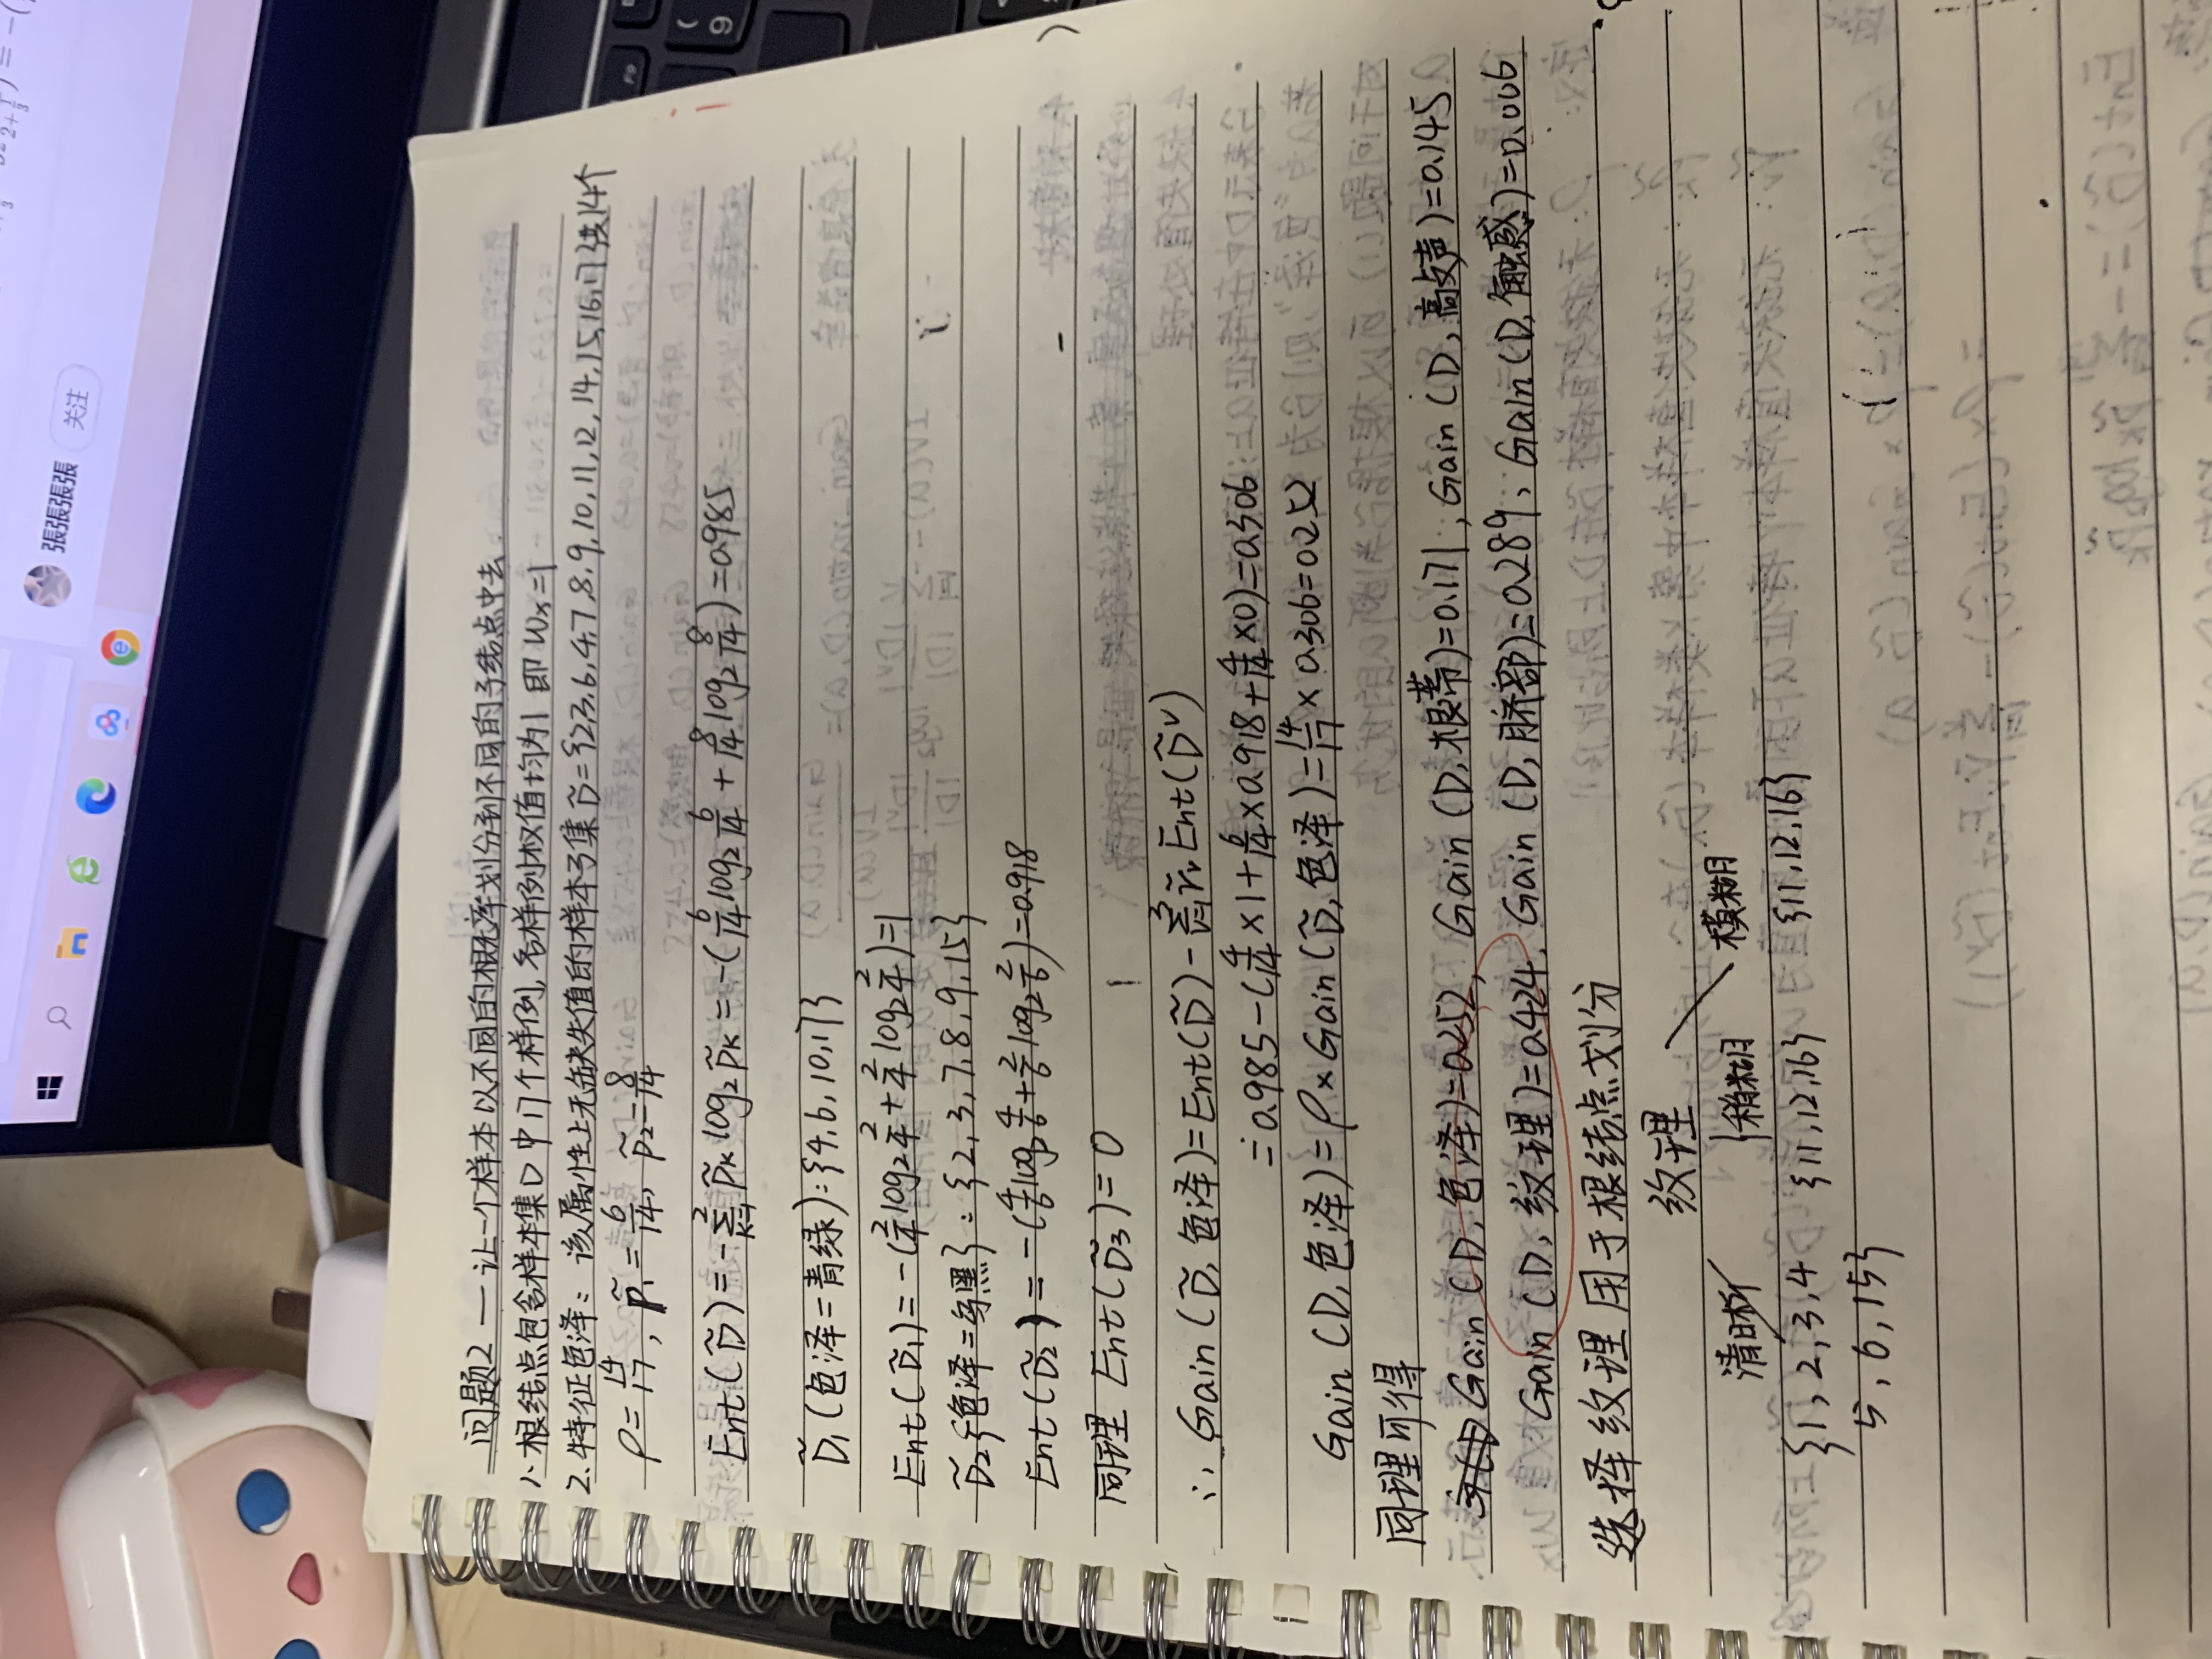 張張張張 关注
问题2 — 让一个样本以不同的概率划分到不同的子结点中去
1. 根结点包含样本集D中17个样例, 各样例权值均为1 即 Wx=1
2. 特征色泽: 该属性上无缺失值的样本子集 D̃={2,3,6,4,7,8,9,10,11,12,14,15,16,17}共14个
ρ=14/17, p̃₁=6/14, p̃₂=8/14
Ent(D̃)=-∑²ₖ₌₁ p̃ₖ log₂ p̃ₖ = -(6/14 log₂ 6/14 + 8/14 log₂ 8/14)=0.985
D̃₁(色泽=青绿):{4,6,10,17}
Ent(D̃₁)=-(2/4 log₂ 2/4 + 2/4 log₂ 2/4)=1
D̃₂{色泽=乌黑}:{2,3,7,8,9,15}
Ent(D̃₂)=-(4/6 log₂ 4/6 + 2/6 log₂ 2/6)=0.918
同理 Ent(D̃₃)=0
∴ Gain(D̃,色泽)=Ent(D̃)-∑³ᵥ₌₁ r̃ᵥ Ent(D̃ᵛ)
=0.985-(4/14×1+6/14×0.918+4/14×0)=0.306
Gain(D,色泽)=ρ×Gain(D̃,色泽)=14/17×0.306=0.252
同理可得
Gain(D,色泽)=0.252, Gain(D,根蒂)=0.171, Gain(D,敲声)=0.145
Gain(D,纹理)=0.424, Gain(D,脐部)=0.289, Gain(D,触感)=0.006
选择纹理用于根结点划分
纹理
清晰 稍糊 模糊
{1,2,3,4 {11,12,16} {11,12,16}
5,6,15}